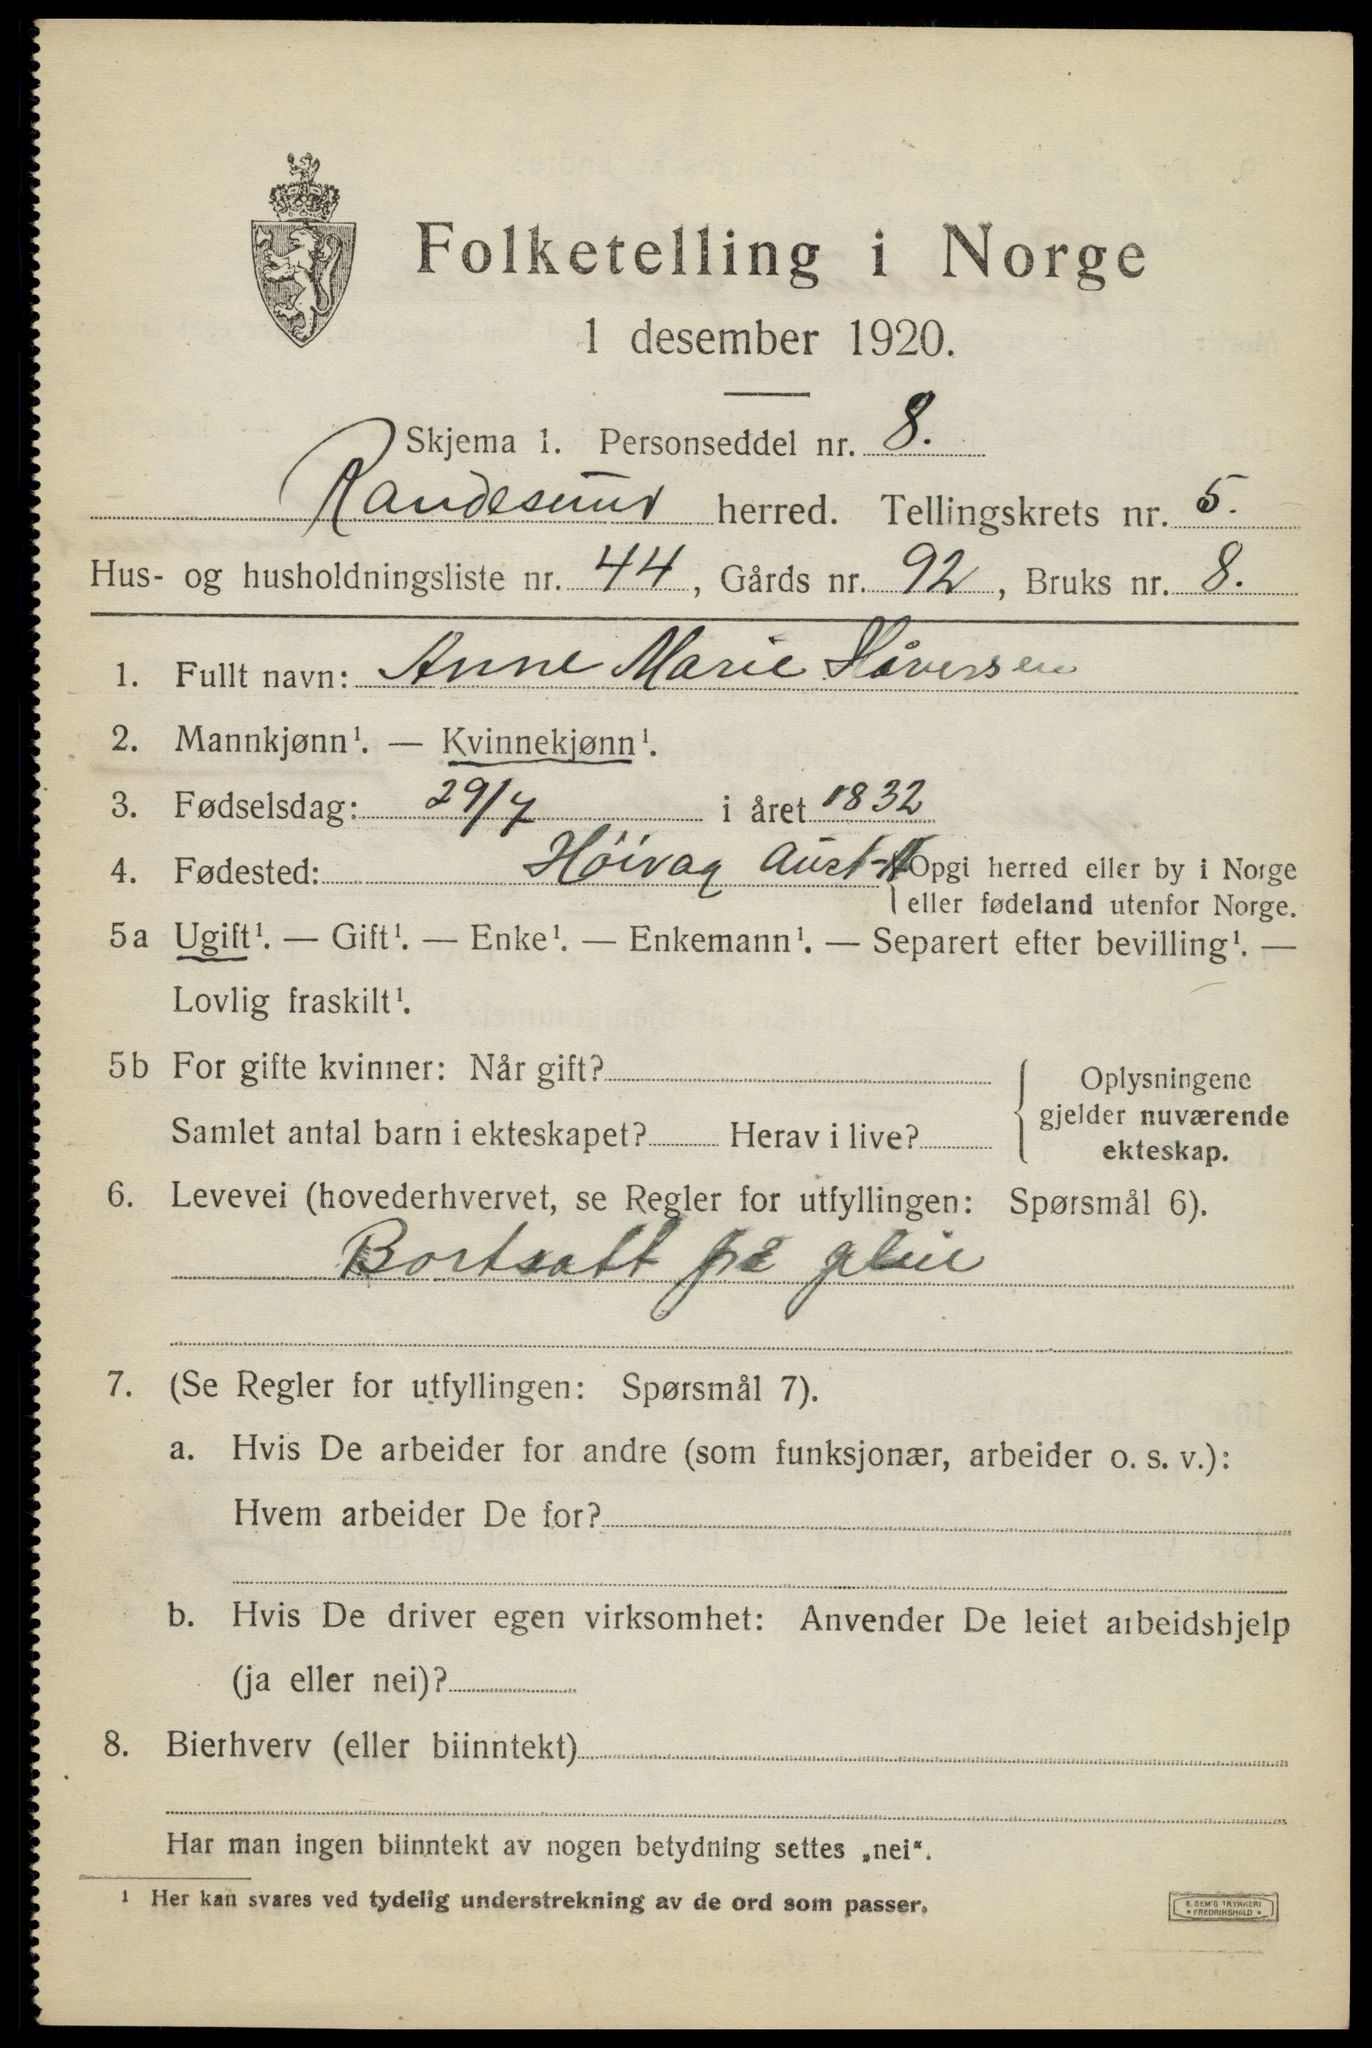 Folketelling i Norge
1 desember 1920.
Skjema 1. Personseddel nr. 8.
Randesund herred. Tellingskrets nr. 5.
Hus- og husholdningsliste nr. 44, Gårds nr. 92, Bruks nr. 8.
1. Fullt navn: Anne Marie Håversen
2. Mannkjønn¹. — Kvinnekjønn¹.
3. Fødselsdag: 29/7 i året 1832
4. Fødested: Höivag Aust-A Opgi herred eller by i Norge
eller fødeland utenfor Norge.
5a Ugift¹. — Gift¹. — Enke¹. — Enkemann¹. — Separert efter bevilling¹. —
Lovlig fraskilt¹.
5b For gifte kvinner: Når gift?
Samlet antal barn i ekteskapet? Herav i live?
Oplysningene
gjelder nuværende
ekteskap.
6. Levevei (hovederhvervet, se Regler for utfyllingen: Spørsmål 6).
Bortsatt på pleie
7. (Se Regler for utfyllingen: Spørsmål 7).
a. Hvis De arbeider for andre (som funksjonær, arbeider o. s. v.):
Hvem arbeider De for?
b. Hvis De driver egen virksomhet: Anvender De leiet arbeidshjelp
(ja eller nei)?
8. Bierhverv (eller biinntekt)
Har man ingen biinntekt av nogen betydning settes „nei“.
¹ Her kan svares ved tydelig understrekning av de ord som passer.
E. SEM'S TRYKKERI
* FREDRIKSHALD *